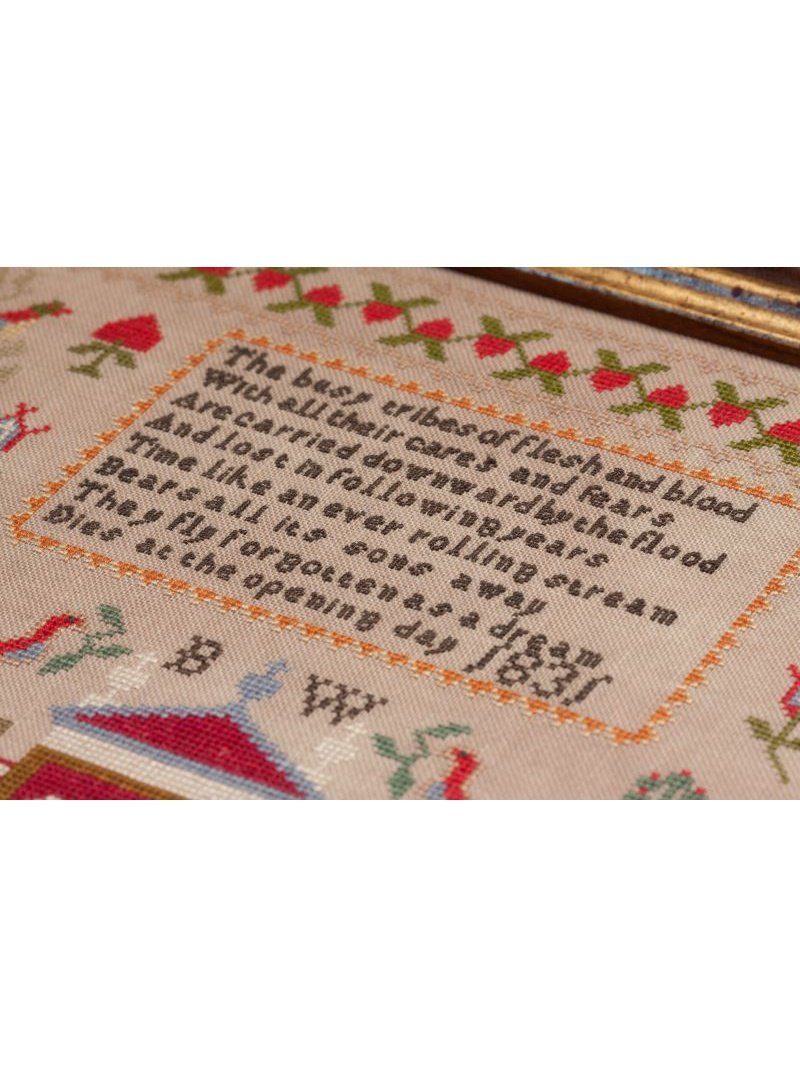 The busy tribes of flesh and blood
With all their cares and fears
Are carried downward by the flood
And lost in following years
Time like an ever rolling stream
Bears all its sons away
They fly forgotten as a dream
Dies at the opening day 1831
B W